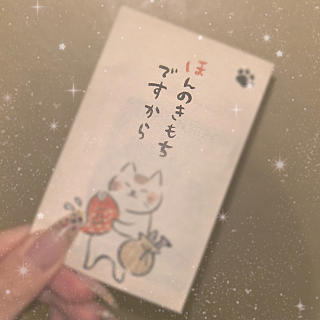 ほんのきもち
ですから